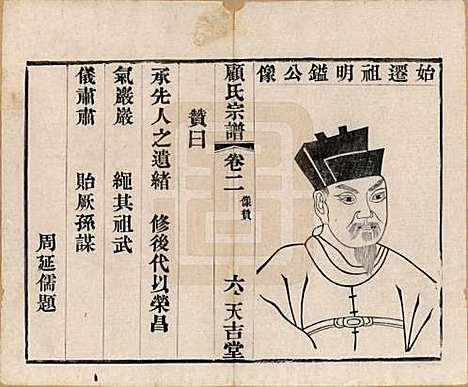 始遷祖明鑑公像
顧氏宗譜 卷二 像贊 六 天吉堂
贊曰
承先人之遺緒 修後代以榮昌
氣嚴嚴 繩其祖武
儀肅肅 貽厥孫謀
周延儒題